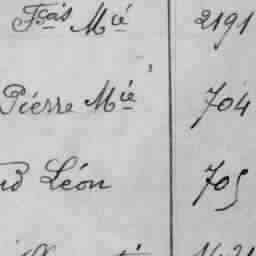 Fçois Mié 2191
Pierre Mié 704
Léon 705